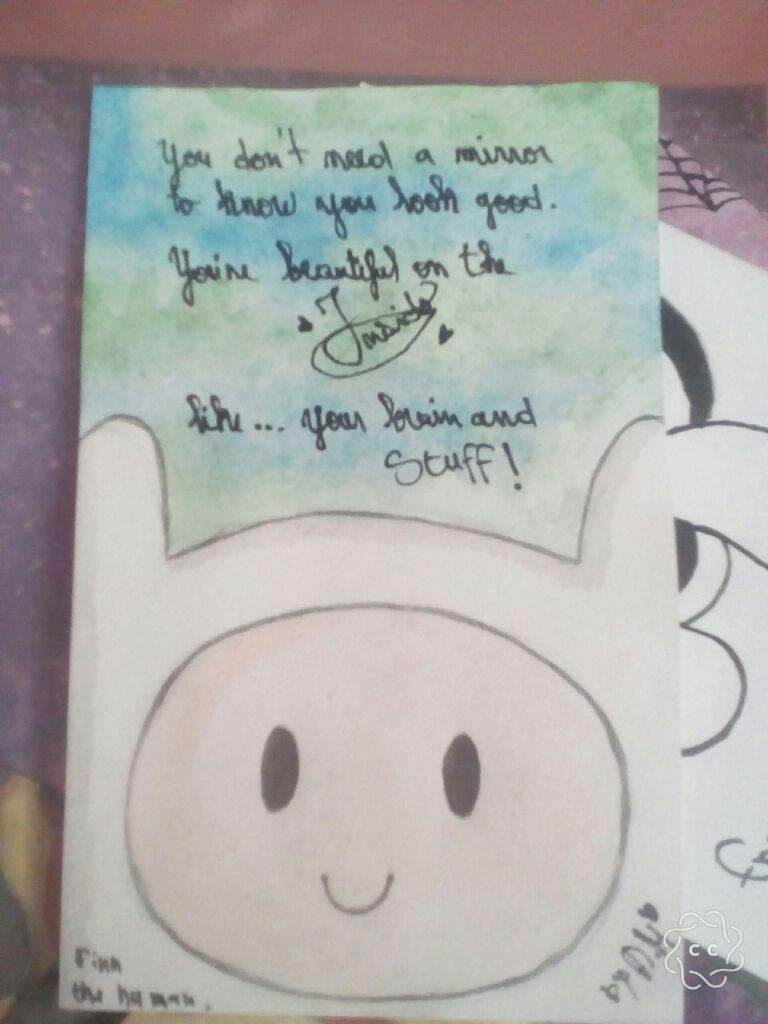 You don't need a mirror
to know you look good.
You're beautiful on the
Inside
like... your brain and
Stuff!
Finn
the human.
CC